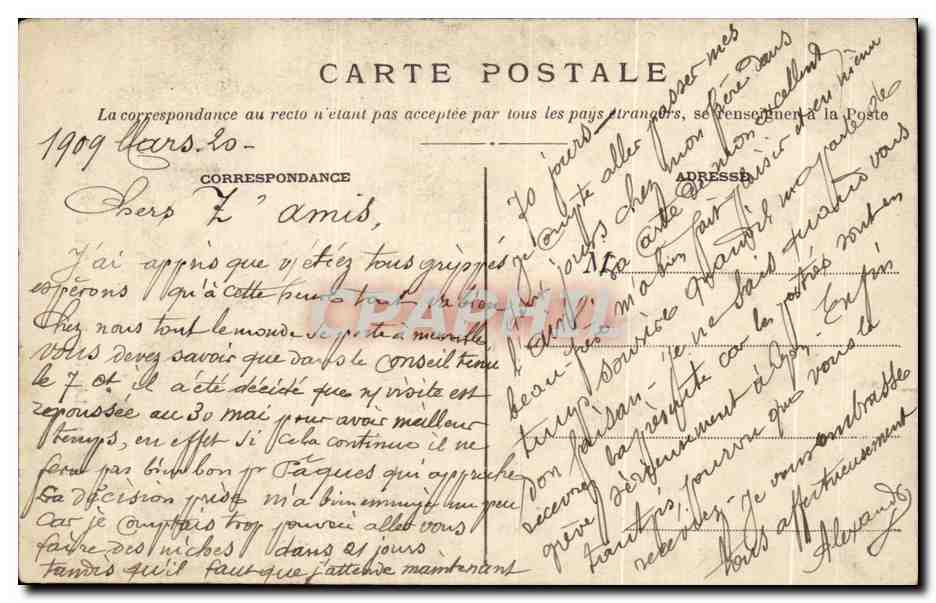 CARTE POSTALE
La correspondance au recto n'étant pas acceptée par tous les pays étrangers, se renseigner à la Poste
1909 Mars. 20 -
CORRESPONDANCE
ADRESSE
M
CPARAMA
Chers Z' amis,
J'ai appris que v/ étiez tous grippés
espérons qu'à cette heure tout va bien
Chez nous tout le monde se porte à merveille
vous devez savoir que dans le conseil tenu
le 7 ct il a été décidé que n/ visite est
repoussée au 30 mai pour avoir meilleur
temps, en effet si cela continue il ne
fera pas bien bon pr Pâques qui approche
La décision prise m'a bien ennuyé un peu
car je comptais trop pouvoir aller vous
faire des niches dans 21 jours
tandis qu'il faut que j'attende maintenant
70 jours - je compte aller passer mes
jours chez mon frère dans
l' La carte de mon excellent
beau-père m'a bien fait plaisir et en même
temps sourire quand il me parle de
son faisan - je ne sais quand vous
recevrez la présente car les postes sont en
grève sérieusement à Lyon. Enfin
tant pis, pourvu que vous la
receviez - Je vous embrasse
tous affectueusement
Alexandre